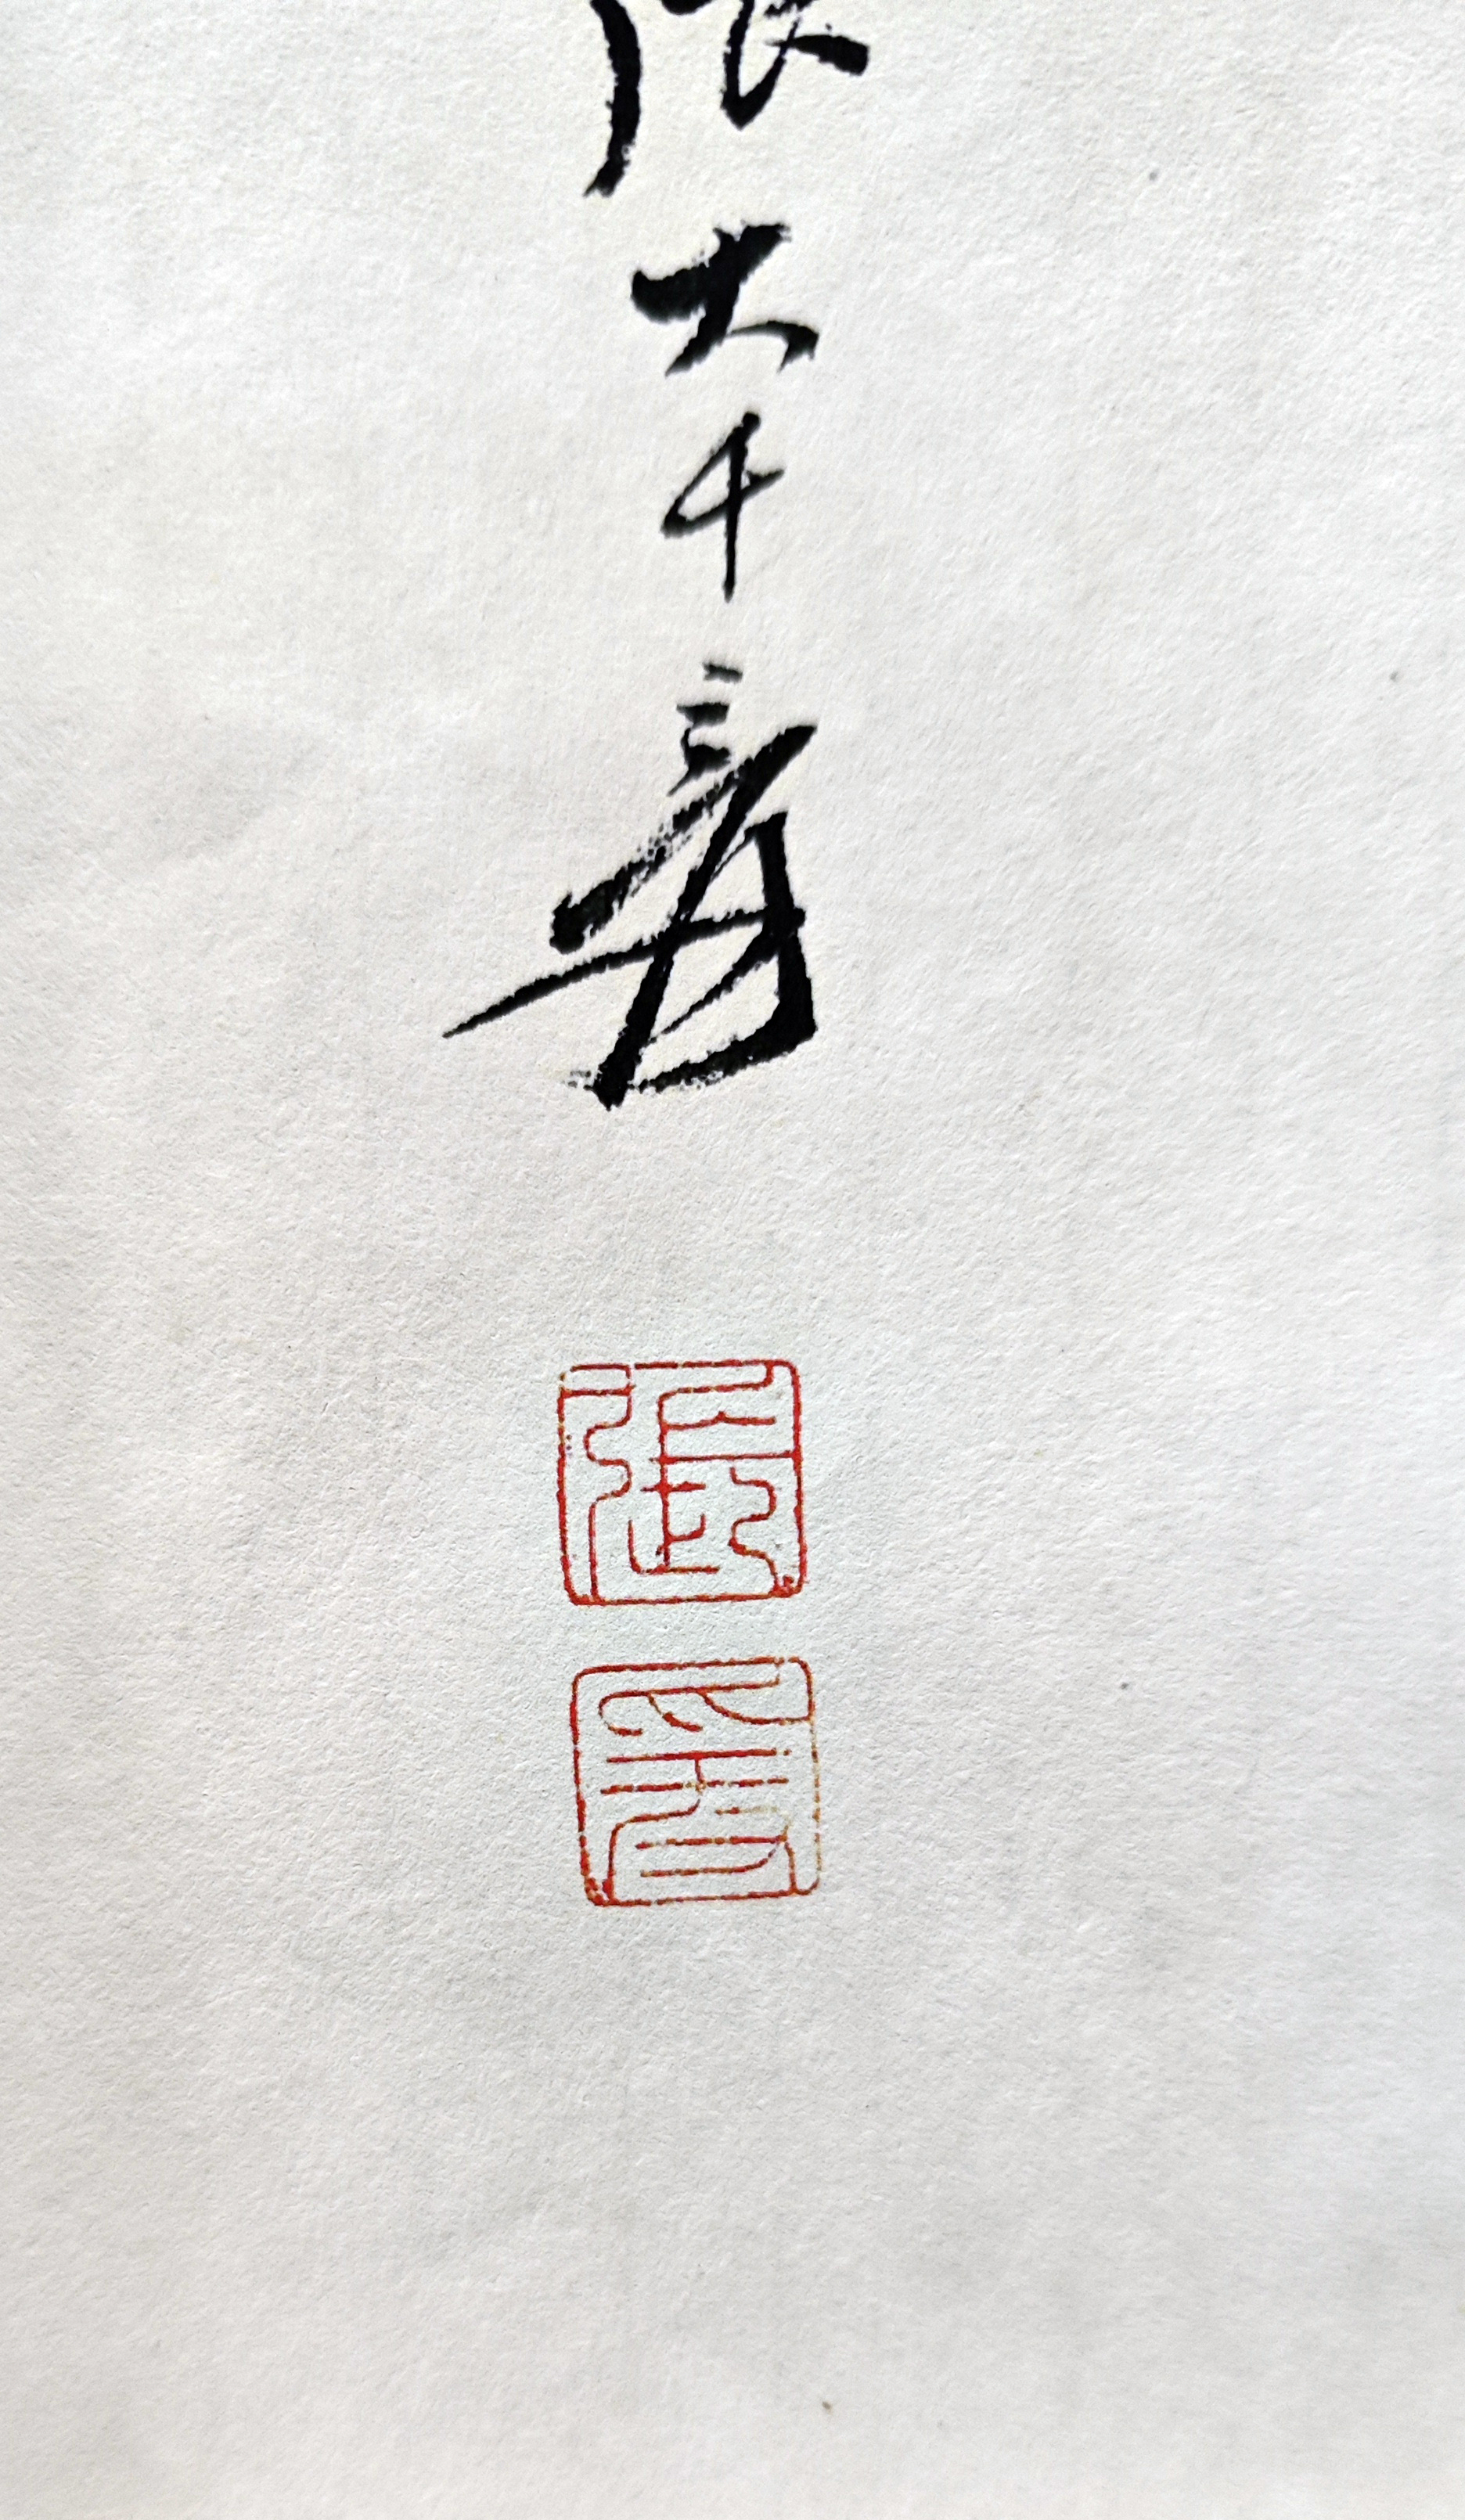 張大千爰
張
爰